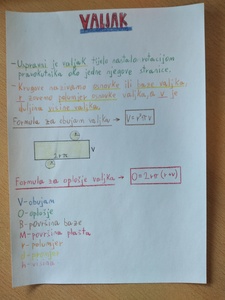 VALJAK
- Uspravni je valjak tijelo nastalo rotacijom
pravokutnika oko jedne njegove stranice.
- Krugove nazivamo osnovke ili baze valjka,
r zovemo polumjer osnovke valjka, a v je
duljina visine valjka.
Formula za obujam valjka → V = r²π v
v
2rπ
Formula za oplošje valjka → O = 2rπ (r+v)
V - obujam
O - oplošje
B - površina baze
M - površina plašta
r - polumjer